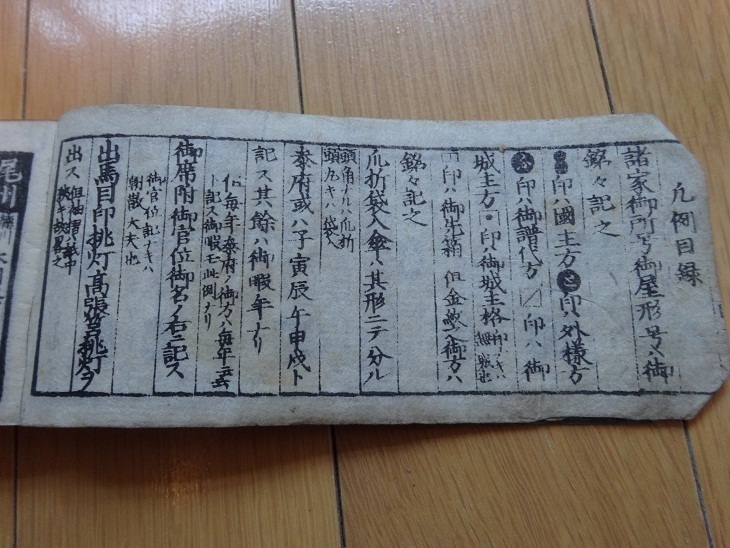 凡例目録
諸家御所号御屋形号ハ御
銘々記之
印ハ國主方 印ハ外様方
印ハ御譜代方 印ハ御
城主方 印ハ御城主格 印ナキハ
無城也
印ハ御先箱 但金紋ハ御方ハ
銘々記之
爪折袋入傘ハ其形ニテ分ル
頭角ナルハ爪折
頭丸キハ袋入
参府或ハ子寅辰午申戌ト
記ス其餘ハ御暇年ナリ
但毎年参府ノ御方ハ毎年
ト記ス御暇モ此例ナリ
御席附御官位御名ノ右ニ記ス
御官位記ナキハ
朝散大夫也
出馬目印挑灯高張挑灯ヲ
出ス
尾州